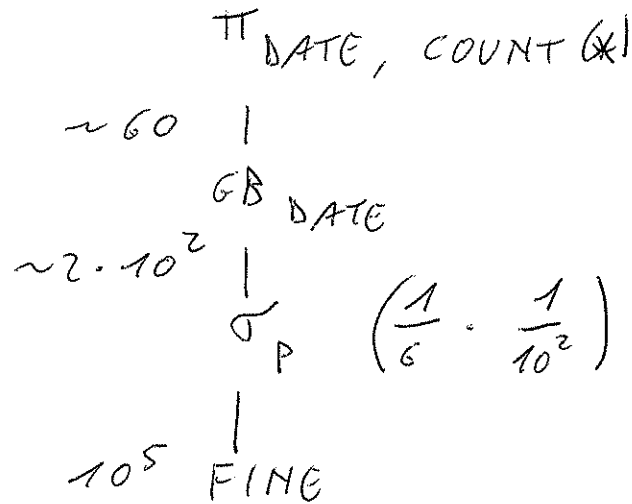 π DATE, COUNT(*)
~60
GB DATE
~2·10²
σ P (1/6 · 1/10²)
10⁵ FINE